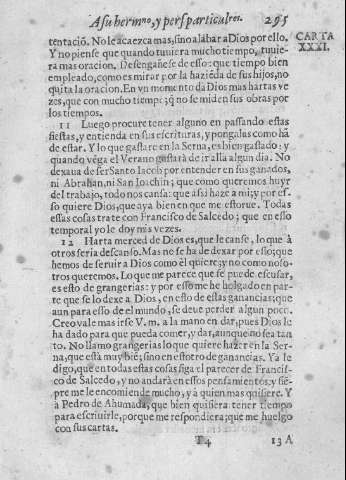 A su hermano, y pers. particulares. 295
CARTA
XXXI.
tentació. No le acaezca mas, sino alabar a Dios por ello.
Y no piense que quando tuuiera mucho tiempo, tuuie-
ra mas oracion. Desengañese de esso: que tiempo bien
empleado, como es mirar por la haziēda de sus hijos, no
quita la oracion. En vn momento da Dios mas hartas ve
zes, que con mucho tiempo; q̄ no se miden sus obras por
los tiempos.
11 Luego procure tener alguno en passando estas
fiestas, y entienda en sus escrituras, y pongalas como hā
de estar. Y lo que gastare en la Serna, es bien gastado: y
quando vēga el Verano gustarà de ir alla algun dia. No
dexaua de ser Santo Iacob por entender en sus ganados,
ni Abrahan, ni San Joachin; que como queremos huyr
del trabajo, todo nos cansa: que assi haze a mi; y por es-
so quiere Dios, que aya bien en que me estorue. Todas
essas cosas trate con Francisco de Salcedo; que en esso
temporal yo le doy mis vezes.
12 Harta merced de Dios es, que le canse, lo que à
otros seria descanso. Mas no se ha de dexar por esso; que
hemos de seruir a Dios como èl quiere; y no como noso-
tros queremos. Lo que me parece que se puede escusar,
es esto de grangerias: y por esso me he holgado en par-
te que se lo dexe a Dios, en esto de essas ganancias; que
aun para esso de el mundo, se deue perder algun poco.
Creo vale mas irse V. m. a la mano en dar, pues Dios le
ha dado para que pueda comer, y dar, aunque no sea tan
to. No llamo grangerias lo que quiere hazer en la Ser-
na, que està muy biē; sino en essotro de ganancias. Ya le
digo, que en todas estas cosas siga el parecer de Francis-
co de Salcedo, y no andarà en essos pensamientos; y siē-
pre me le encomiende mucho, y a quien mas quisiere. Y
à Pedro de Ahumada, que bien quisiera tener tiempo
para escriuirle, porque me respondiera; que me huelgo
con sus cartas.
T4 13 A